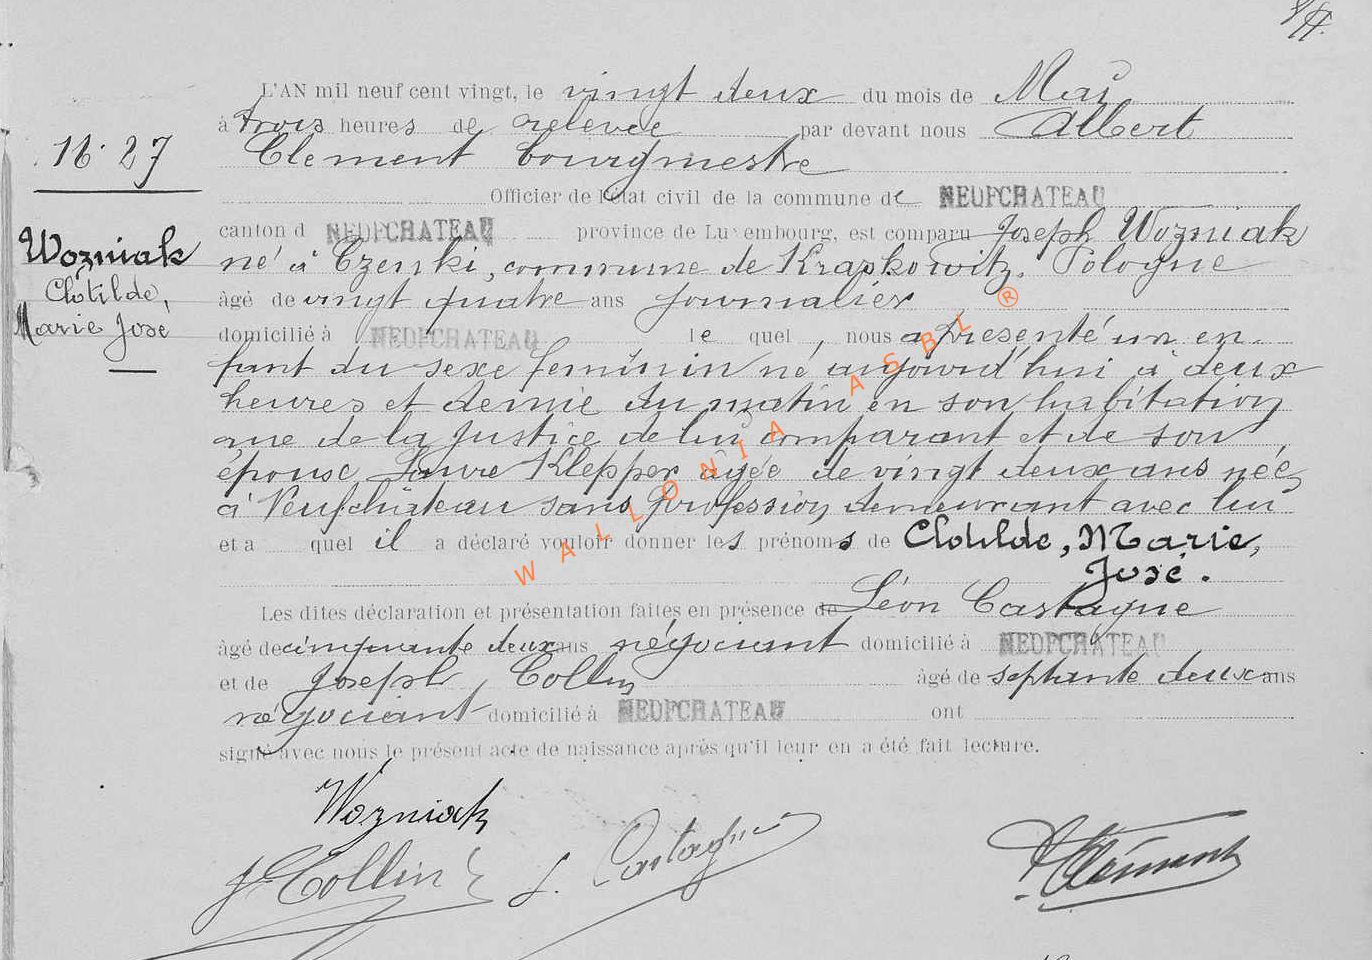 L'AN mil neuf cent vingt, le vingt deux du mois de Mai
à trois heures de relevée par devant nous Albert
Clement bourgmestre
N: 27
Officier de l'état civil de la commune de NEUFCHATEAU
canton d NEUFCHATEAU province de Luxembourg, est comparu Joseph Wozniak
Wozniak
né à Czenki, commune de Kraskowitz. Pologne
Clotilde,
âgé de vingt quatre ans journalier
Marie José
domicilié à NEUFCHATEAU le quel, nous a présenté un en-
fant du sexe feminin né aujourd'hui à deux
heures et demie du matin en son habitation
rue de la Justice de lui comparant et de son
épouse Laure Klepper âgée de vingt deux ans née
à Neufchâteau sans profession demeurant avec lui
et a quel il a déclaré vouloir donner les prénoms de Clotilde, Marie,
José.
Les dites déclaration et présentation faites en présence de Léon Castagne
âgé de cinquante deux ans négociant domicilié à NEUFCHATEAU
et de Joseph Collin âgé de septante deux ans
négociant domicilié à NEUFCHATEAU ont
signé avec nous le présent acte de naissance après qu'il leur en a été fait lecture.
Wozniak
J Collin L. Castagne A Clément
WALLONIA ASBL ®